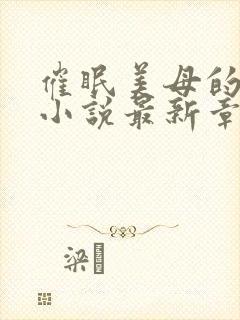 催眠美母的
小说最新章
梁